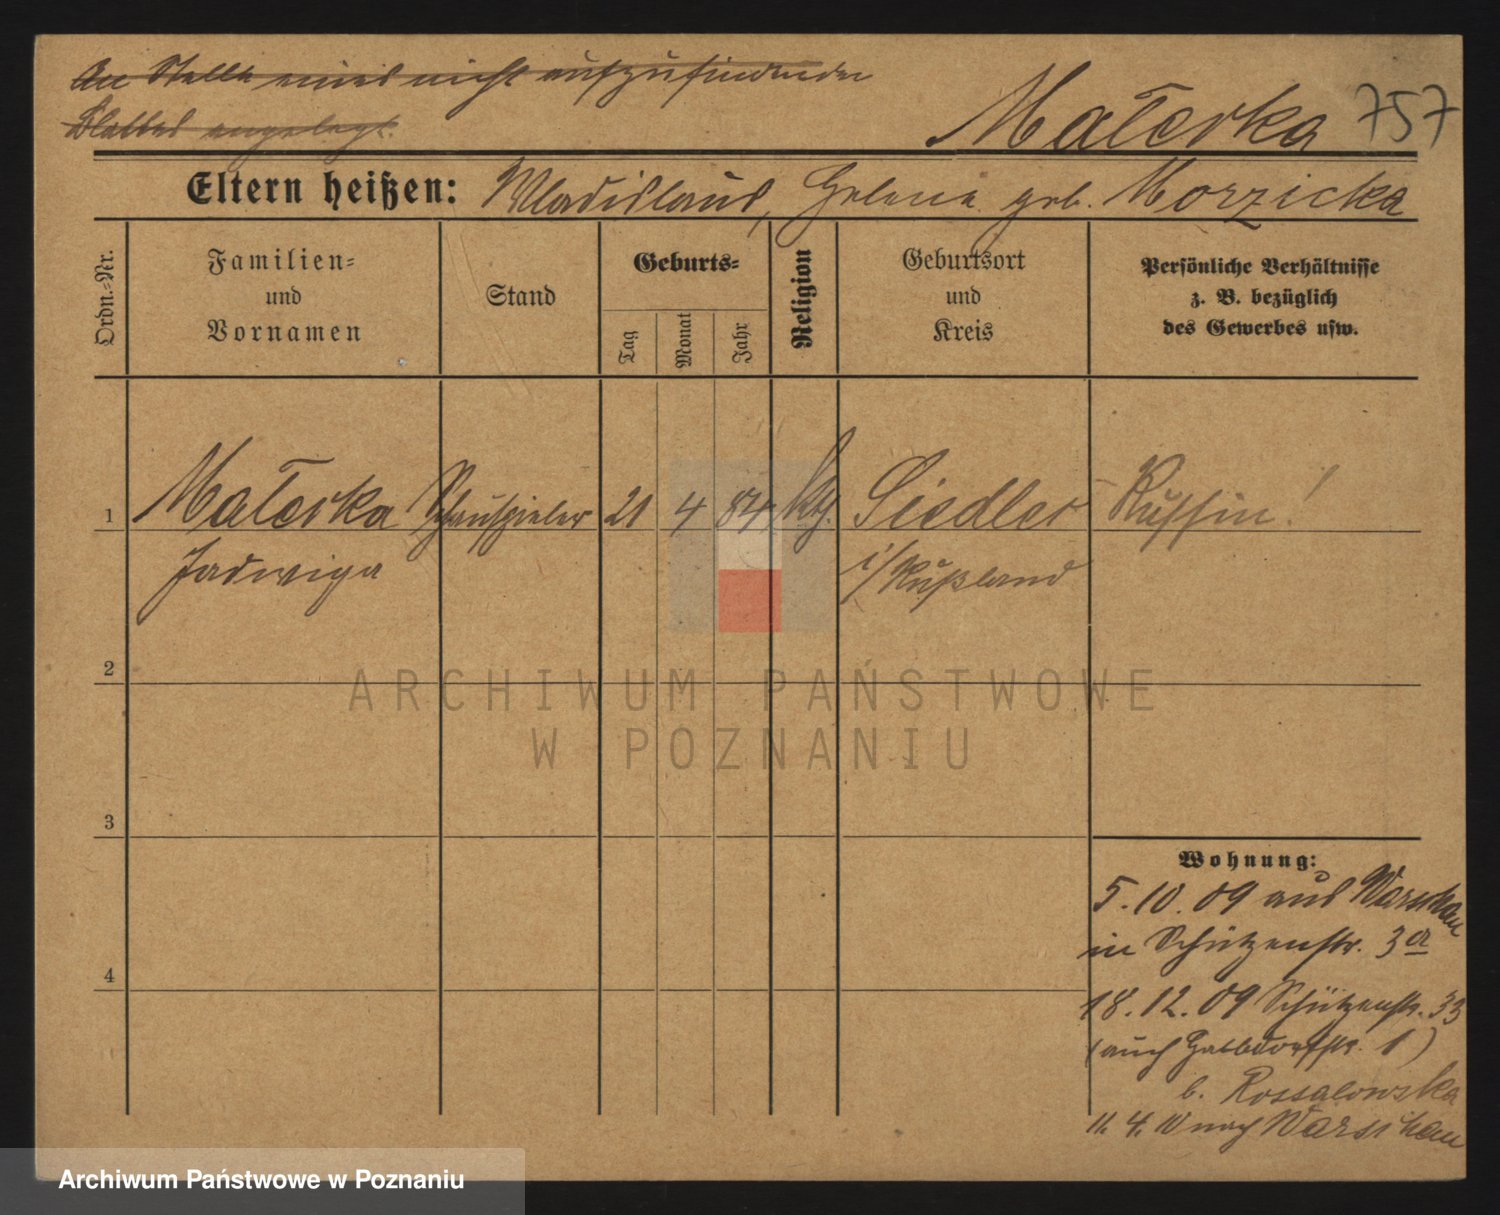 An Stelle eines nicht aufzufindenden
Blattes angelegt.
Materka 757
Eltern heißen: Wladislaus, Helena geb. Morzicka
Ordn.-Nr.
Familien-
und
Vornamen
Stand
Geburts-
Tag
Monat
Jahr
Religion
Geburtsort
und
Kreis
Persönliche Verhältnisse
z. B. bezüglich
des Gewerbes usw.
1 Materka Schauspieler 21 4 84 kth. Siedler Russin!
Jadwiga i/Rußland
2
3
4
Wohnung:
5.10.09 aus Warschau
in Schützenstr. 3
18.12.09 Schützenstr. 33
(auch Halbdorfstr. 1)
b. Rossalowska
11.4.10 nach Warschau
ARCHIWUM PAŃSTWOWE
W POZNANIU
Archiwum Państwowe w Poznaniu